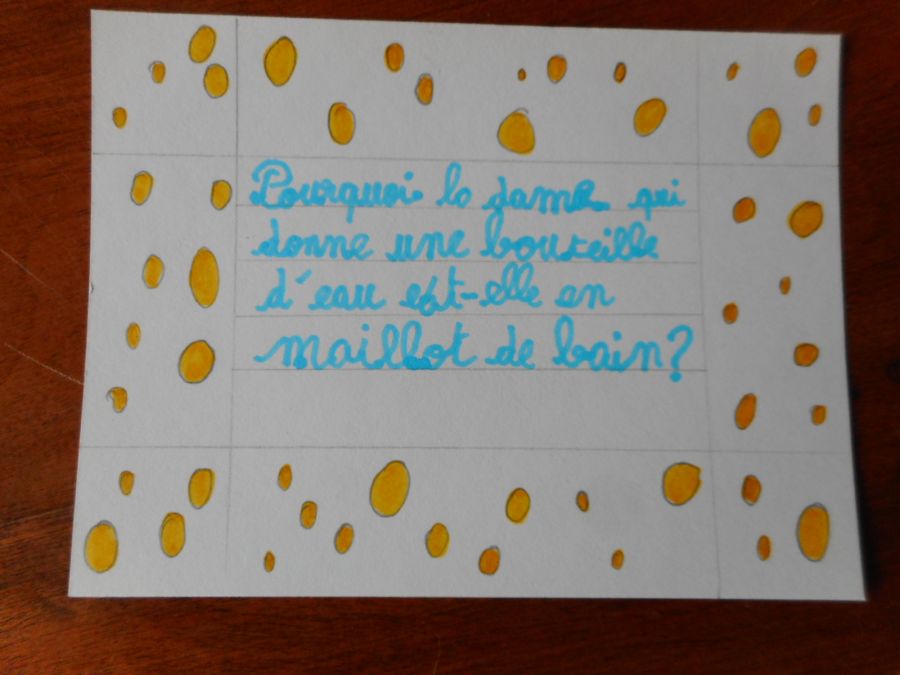 Pourquoi la dame qui
donne une bouteille
d'eau est-elle en
maillot de bain?